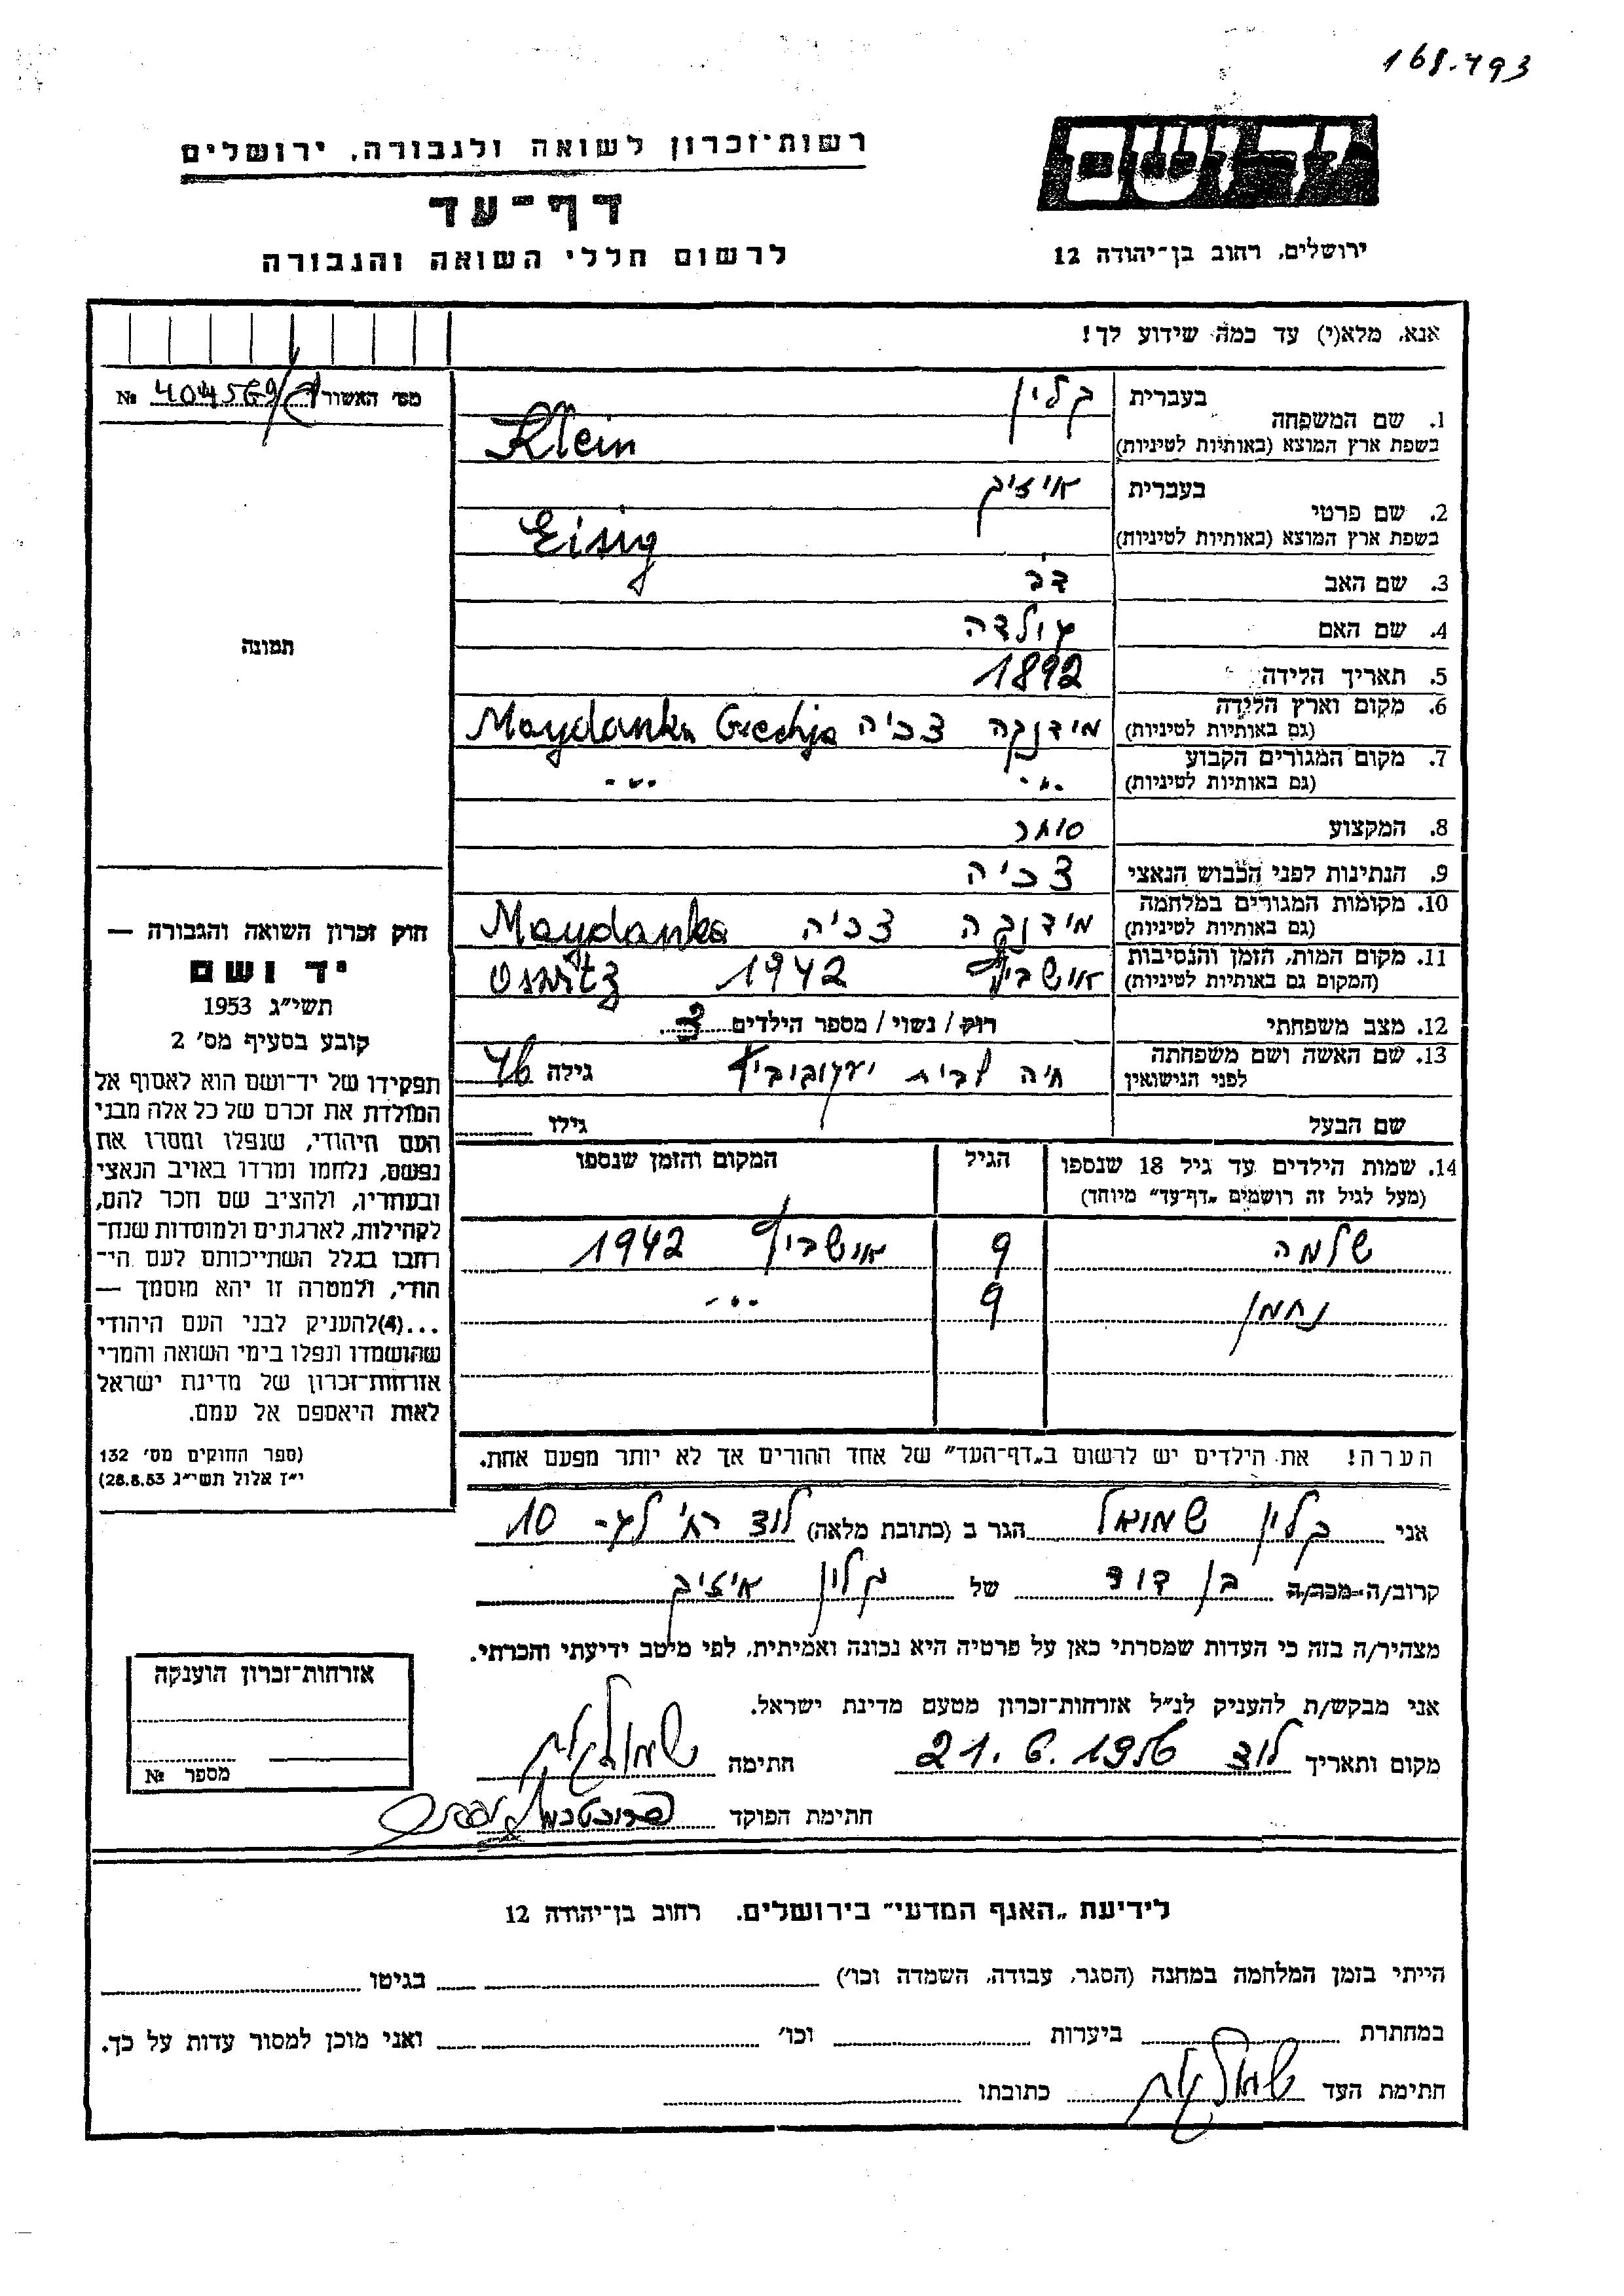 168.493
יד ושם
רשות־זכרון לשואה ולגבורה, ירושלים
דף־עד
לרשום חללי השואה והגבורה
ירושלים, רחוב בן־יהודה 12
אנא, מלא(י) עד כמה שידוע לך!
מס׳ האשור № 404569
1. שם המשפחה
בעברית קלין
בשפת ארץ המוצא (באותיות לטיניות) Klein
2. שם פרטי
בעברית איזיק
בשפת ארץ המוצא (באותיות לטיניות) Eisig
3. שם האב דב
4. שם האם גולדה
5. תאריך הלידה 1892
6. מקום וארץ הלידה
(גם באותיות לטיניות) מידנקה צכיה Maydanka Czechja
7. מקום המגורים הקבוע
(גם באותיות לטיניות) -"- -"-
8. המקצוע סוחר
9. הנתינות לפני הכבוש הנאצי צכיה
10. מקומות המגורים במלחמה
(גם באותיות לטיניות) מידנקה צכיה Maydanka
11. מקום המות, הזמן והנסיבות
(המקום גם באותיות לטיניות) אושביץ 1942
12. מצב משפחתי רוק / נשוי / מספר הילדים 3
13. שם האשה ושם משפחתה
לפני הנישואין חיה לבית יעקובוביץ גילה 46
שם הבעל גילו
14. שמות הילדים עד גיל 18 שנספו
(מעל לגיל זה רושמים „דף־עד" מיוחד)
הגיל
המקום והזמן שנספו
שלמה 9 אושביץ 1942
נחמן 9 -"-
הערה! את הילדים יש לרשום ב„דף־העד" של אחד ההורים אך לא יותר מפעם אחת.
תמונה
חוק זכרון השואה והגבורה —
יד ושם
תשי״ג 1953
קובע בסעיף מס׳ 2
תפקידו של יד־ושם הוא לאסוף אל
המולדת את זכרם של כל אלה מבני
העם היהודי, שנפלו ומסרו את
נפשם, נלחמו ומרדו באויב הנאצי
ובעוזריו, ולהציב שם וזכר להם,
לקהילות, לארגונים ולמוסדות שנח־
רבו בגלל השתייכותם לעם הי־
הודי, ולמטרה זו יהא מוסמך —
...(4)להעניק לבני העם היהודי
שהושמדו ונפלו בימי השואה והמרי
אזרחות־זכרון של מדינת ישראל
לאות היאספם אל עמם.
(ספר החוקים מס׳ 132
י״ז אלול תשי״ג 28.8.53)
אני קלין שמואל הגר ב (כתובת מלאה) לוד רח׳ 10
קרוב/ה מכר/ה בן דוד של קלין איזיק
מצהיר/ה בזה כי העדות שמסרתי כאן על פרטיה היא נכונה ואמיתית, לפי מיטב ידיעתי והכרתי.
אני מבקש/ת להעניק לנ״ל אזרחות־זכרון מטעם מדינת ישראל.
מקום ותאריך לוד 21.6.1956 חתימה
חתימת הפוקד
אזרחות־זכרון הוענקה
מספר №
לידיעת „האגף המדעי" בירושלים, רחוב בן־יהודה 12
הייתי בזמן המלחמה במחנה (הסגר, עבודה, השמדה וכו׳) בגיטו
במחתרת ביערות וכו׳ ואני מוכן למסור עדות על כך.
חתימת העד כתובתו